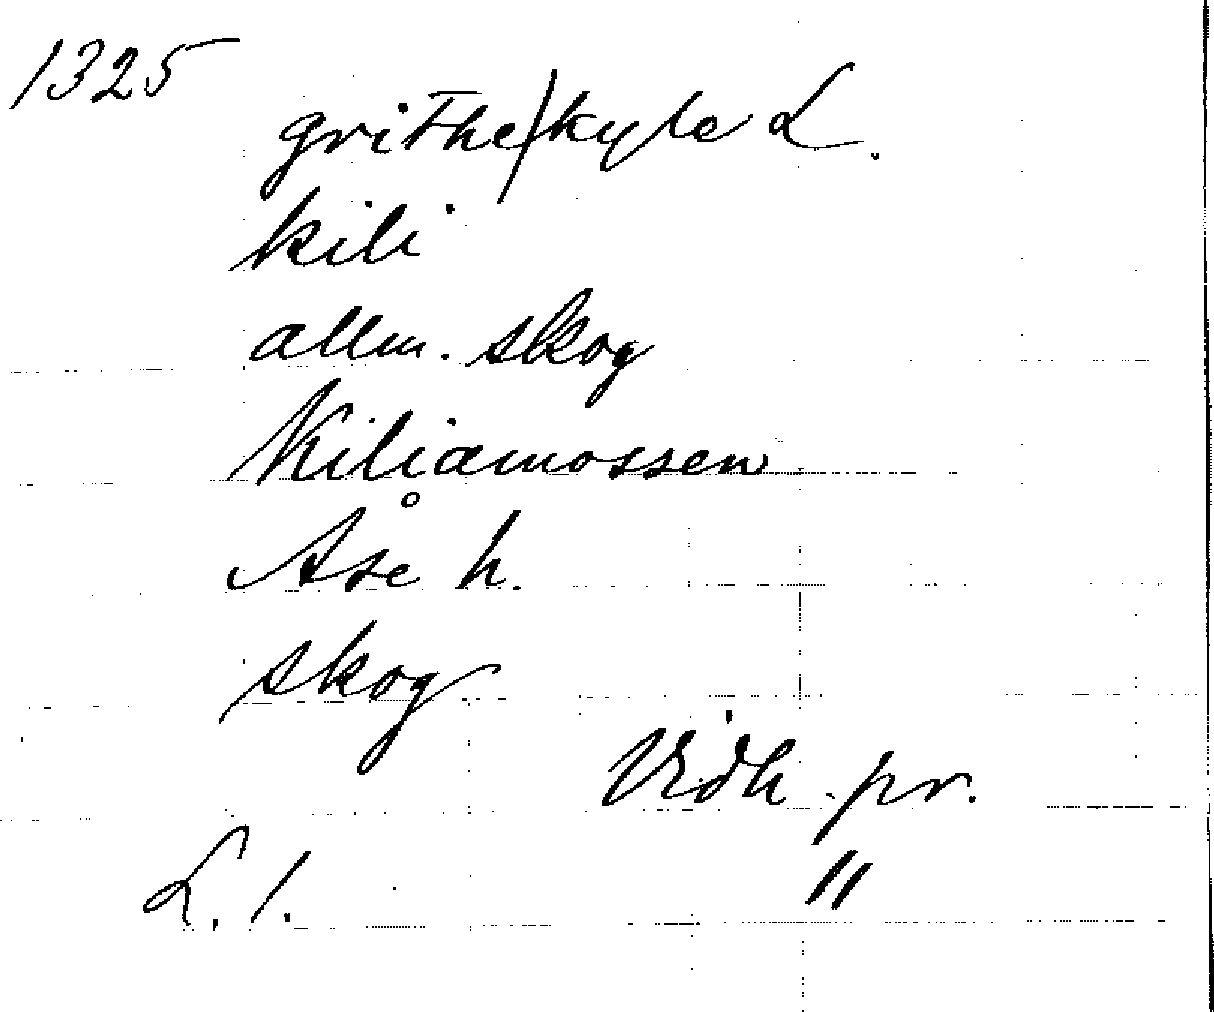 1325
grithe)kyle L.
kili
allm. skog
Kiliamossen
Åse h.
skog
Vidh pr.
L. 1. "